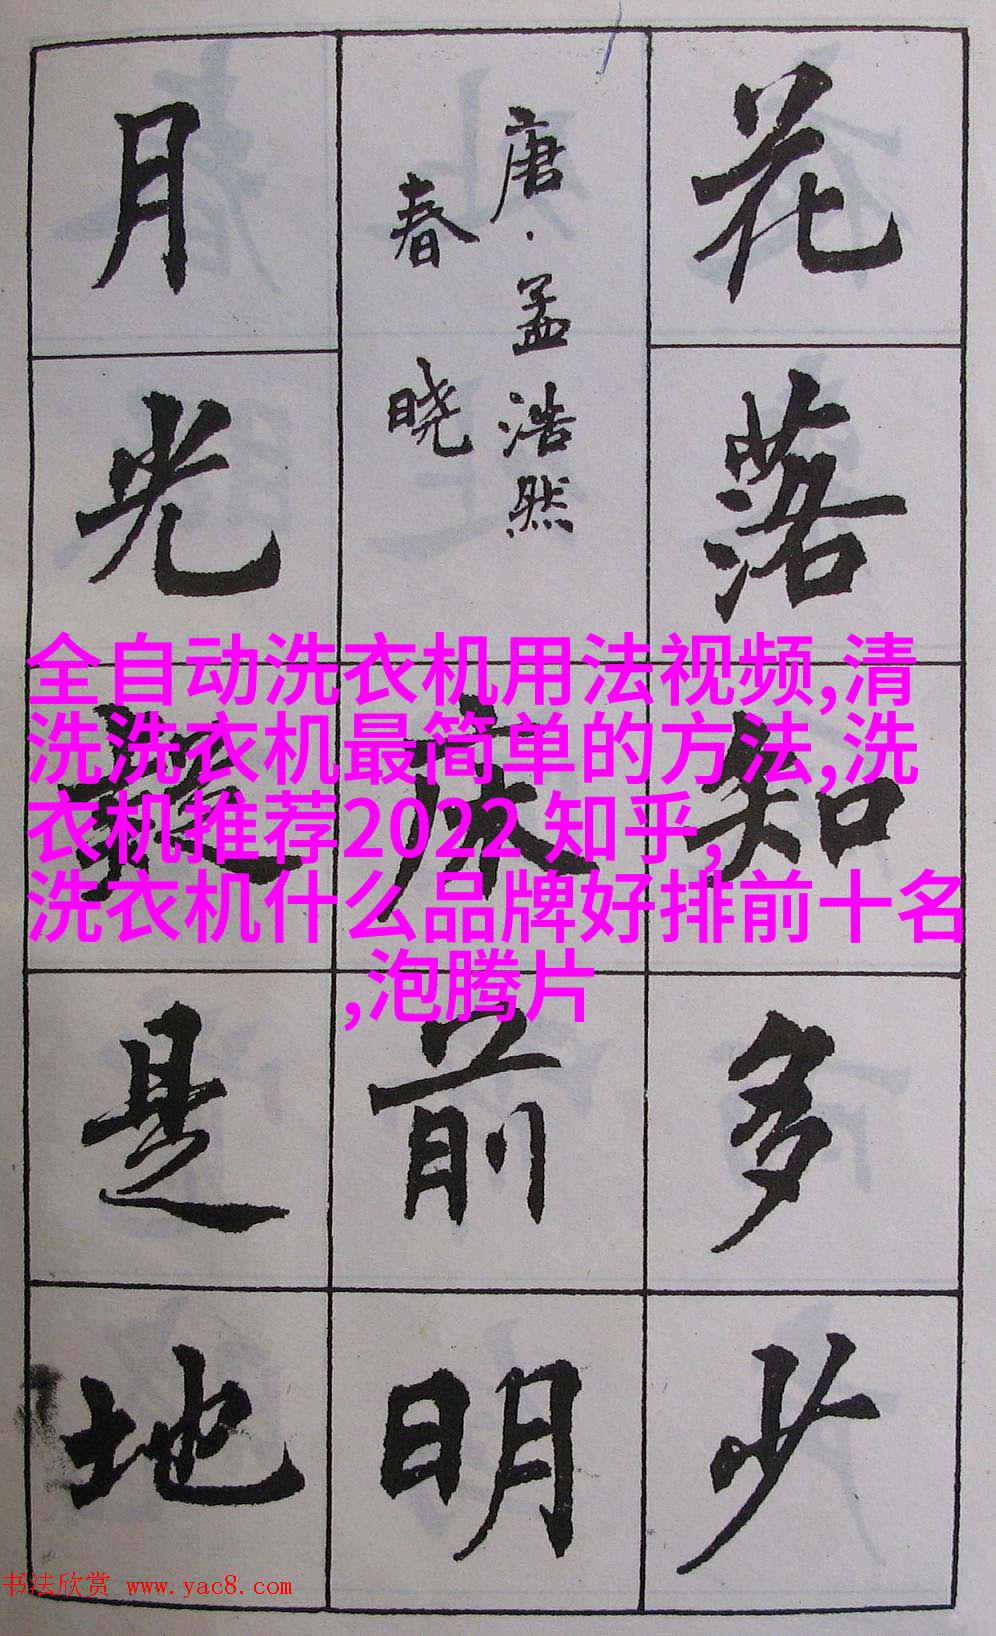 花落知多少
唐·孟浩然
春晓
床前明
月光疑是地
全自动洗衣机用法视频,清
洗洗衣机最简单的方法,洗
衣机推荐2022 知乎,
洗衣机什么品牌好排前十名
,泡腾片
书法欣赏 www.yac8.com